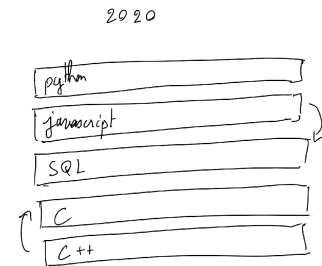 2020
python
javascript
SQL
C
C++